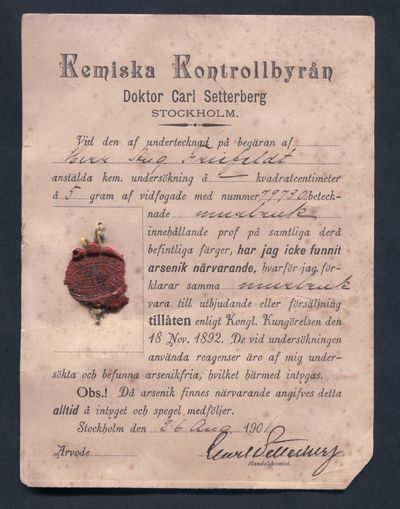 Kemiska Kontrollbyrån
Doktor Carl Setterberg
STOCKHOLM.
Vid den af undertecknad på begäran af
Herr Aug
anstälda kem. undersökning å kvadratcentimeter
à 5 gram af vidfogade med nummer 79730 beteck-
nade murbruk
innehållande prof på samtliga derå
befintliga färger, har jag icke funnit
arsenik närvarande, hvarför jag för-
klarar samma murbruk
vara till utbjudande eller försäljning
tillåten enligt Kongl. Kungörelsen den
18 Nov. 1892. De vid undersökningen
använda reagenser äro af mig under-
sökta och befunna arsenikfria, hvilket härmed intygas.
Obs.! Då arsenik finnes närvarande angifves detta
alltid å intyget och spegel medföljer.
Stockholm den 26 Aug 1901
Arvode Carl Setterberg
Handelskemist.